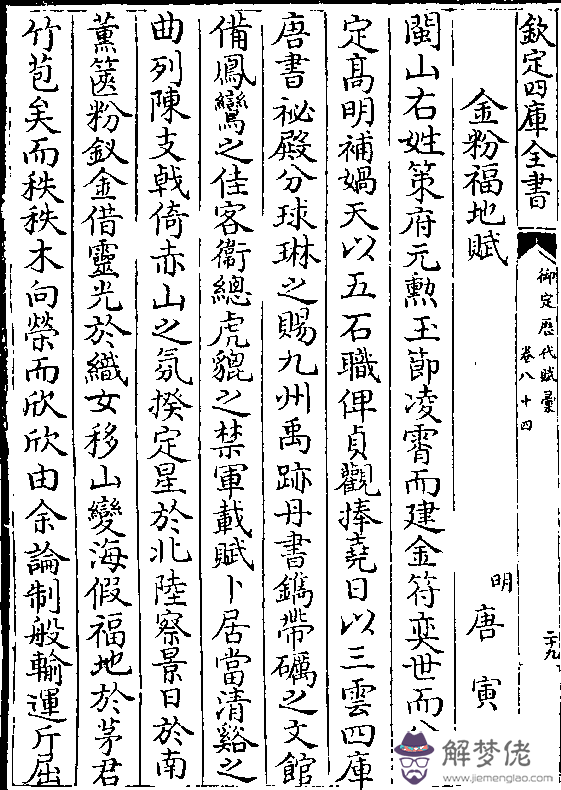 欽定四庫全書
御定歴代賦彙
卷八十四
二九
金粉福地賦
明
唐寅
閩山右姓策府元勲玉節凌霄而建金符奕世而
定髙明補媧天以五石職俾貞觀捧堯日以三雲四庫
唐書祕殿分球琳之賜九州禹跡丹書鐫帶礪之文館
備鳳鸞之佳客衞總虎貔之禁軍載賦卜居當清谿之
曲列陳支㦸倚赤山之氛揆定星於北陸察景日於南
薰篋粉釵金借靈光於織女移山變海假福地於茅君
竹苞矣而秩秩木向榮而欣欣由余論制般輸運斤屈
解梦佬
www.jiemenglao.com